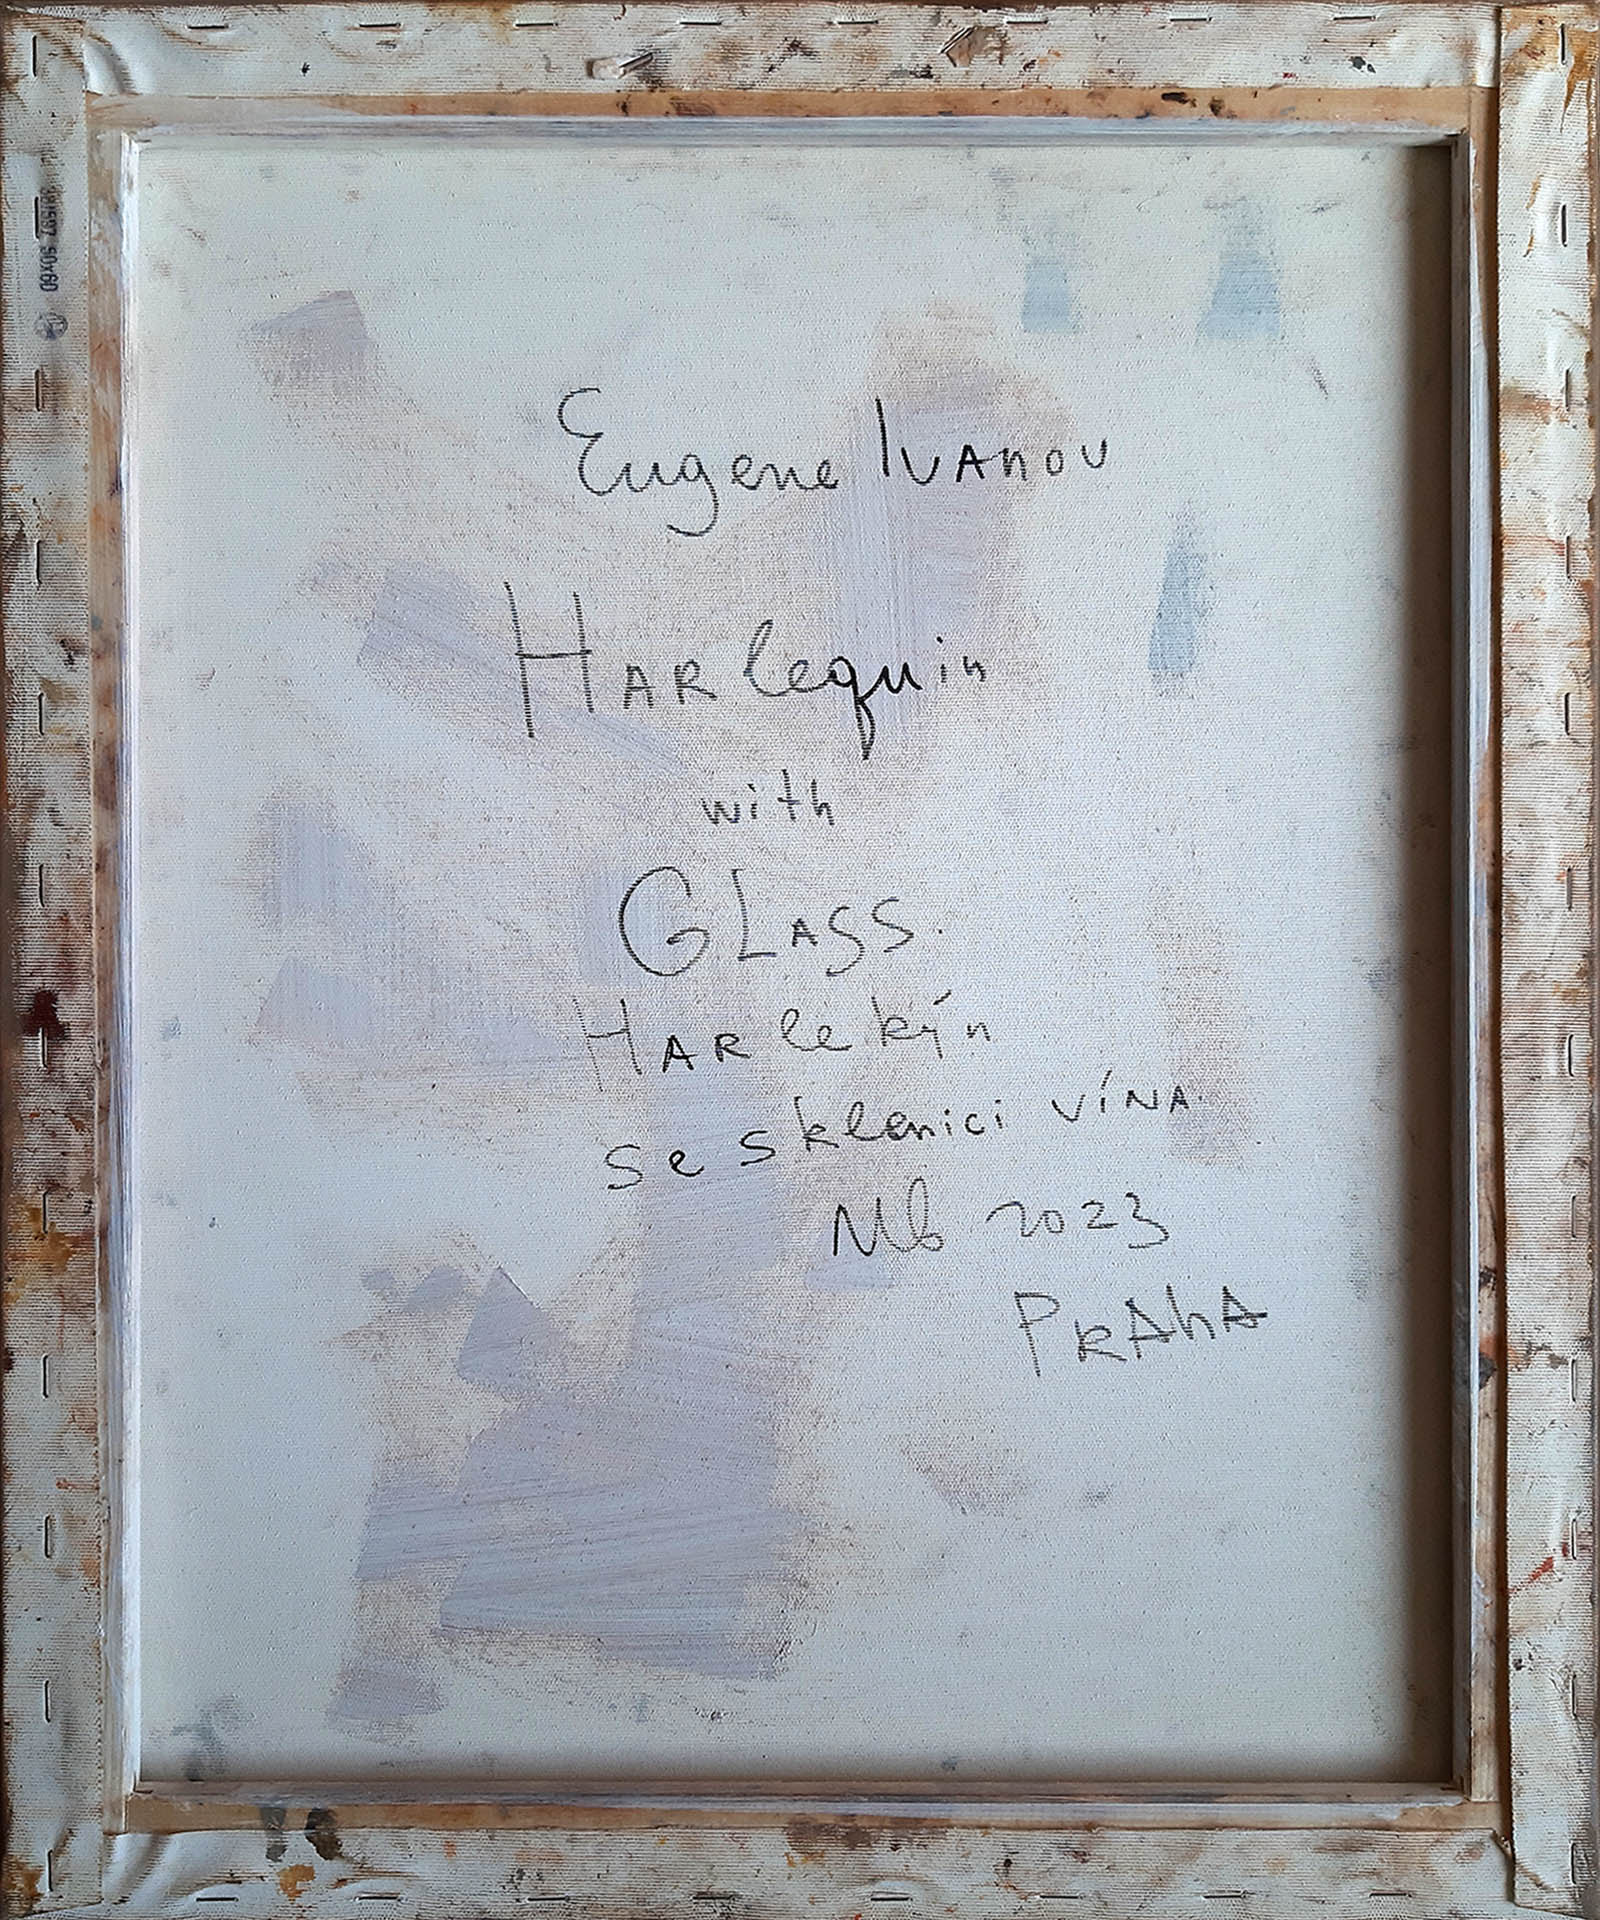 Eugene Ivanov
Harlequin
with
Glass
Harlekýn
se sklenici vína
2023
Praha
50x60